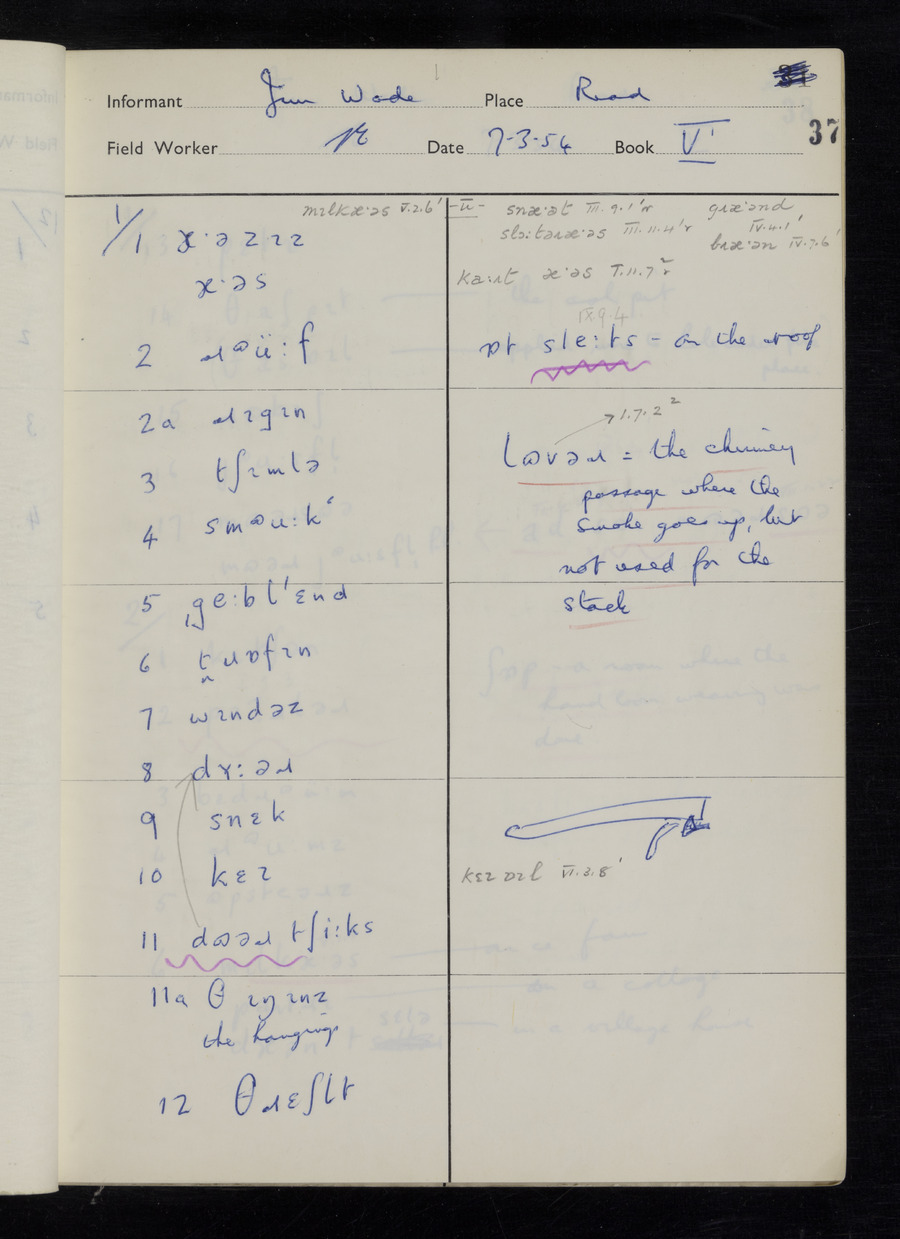 Informant Jim Wade Place Read
37
Field Worker Date 7-3-54 Book V
1/1 æ·əzɪz
æ·əs
mɪlkæ·əs V.2.6'
-ü- snæ·ət III.9.1'r græ·ənd
IV.4.1'
slɔ:təɹæ·əs III.11.4'r
bræ·ən IV.7.6'
ka:ɹt æ·əs I.11.7
IX.9.4
2 ɹᵊü:f
ɒt sle:ts = on the roof
2a ɹɪgɪn
1.7.2²
3 tʃɪmlə
lɷvəɹ = the chimney
passage where the
4 smᵊu:k
smoke goes up, but
not used for the
stack
5 ˌge:bl'ɛnd
6 t̪ɹɒfɪn
7 wɪndəz
8 dɤ:əɹ
9 snɛk
10 kɛɪ
kɛɪ ɒɪl VI.3.8'
11 dɷəɹ tʃi:ks
11a θ ɪŋɪnz
the hangings
12 θɹɛʃlt